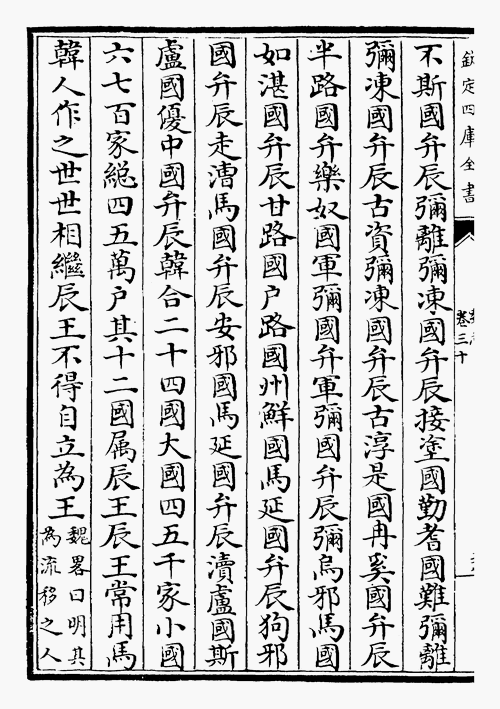 欽定四庫全書
卷三十
不斯國弁辰彌離彌凍國弁辰接塗國勤耆國難彌離
彌凍國弁辰古資彌凍國弁辰古淳是國冉奚國弁辰
半路國弁樂奴國軍彌國弁軍彌國弁辰彌烏邪馬國
如湛國弁辰甘路國户路國州鮮國馬延國弁辰狗邪
國弁辰走漕馬國弁辰安邪國馬延國弁辰瀆盧國斯
盧國優中國弁辰韓合二十四國大國四五千家小國
六七百家緫四五萬户其十二國属辰王辰王常用馬
韓人作之世世相繼辰王不得自立為王
魏畧曰明其
為流移之人